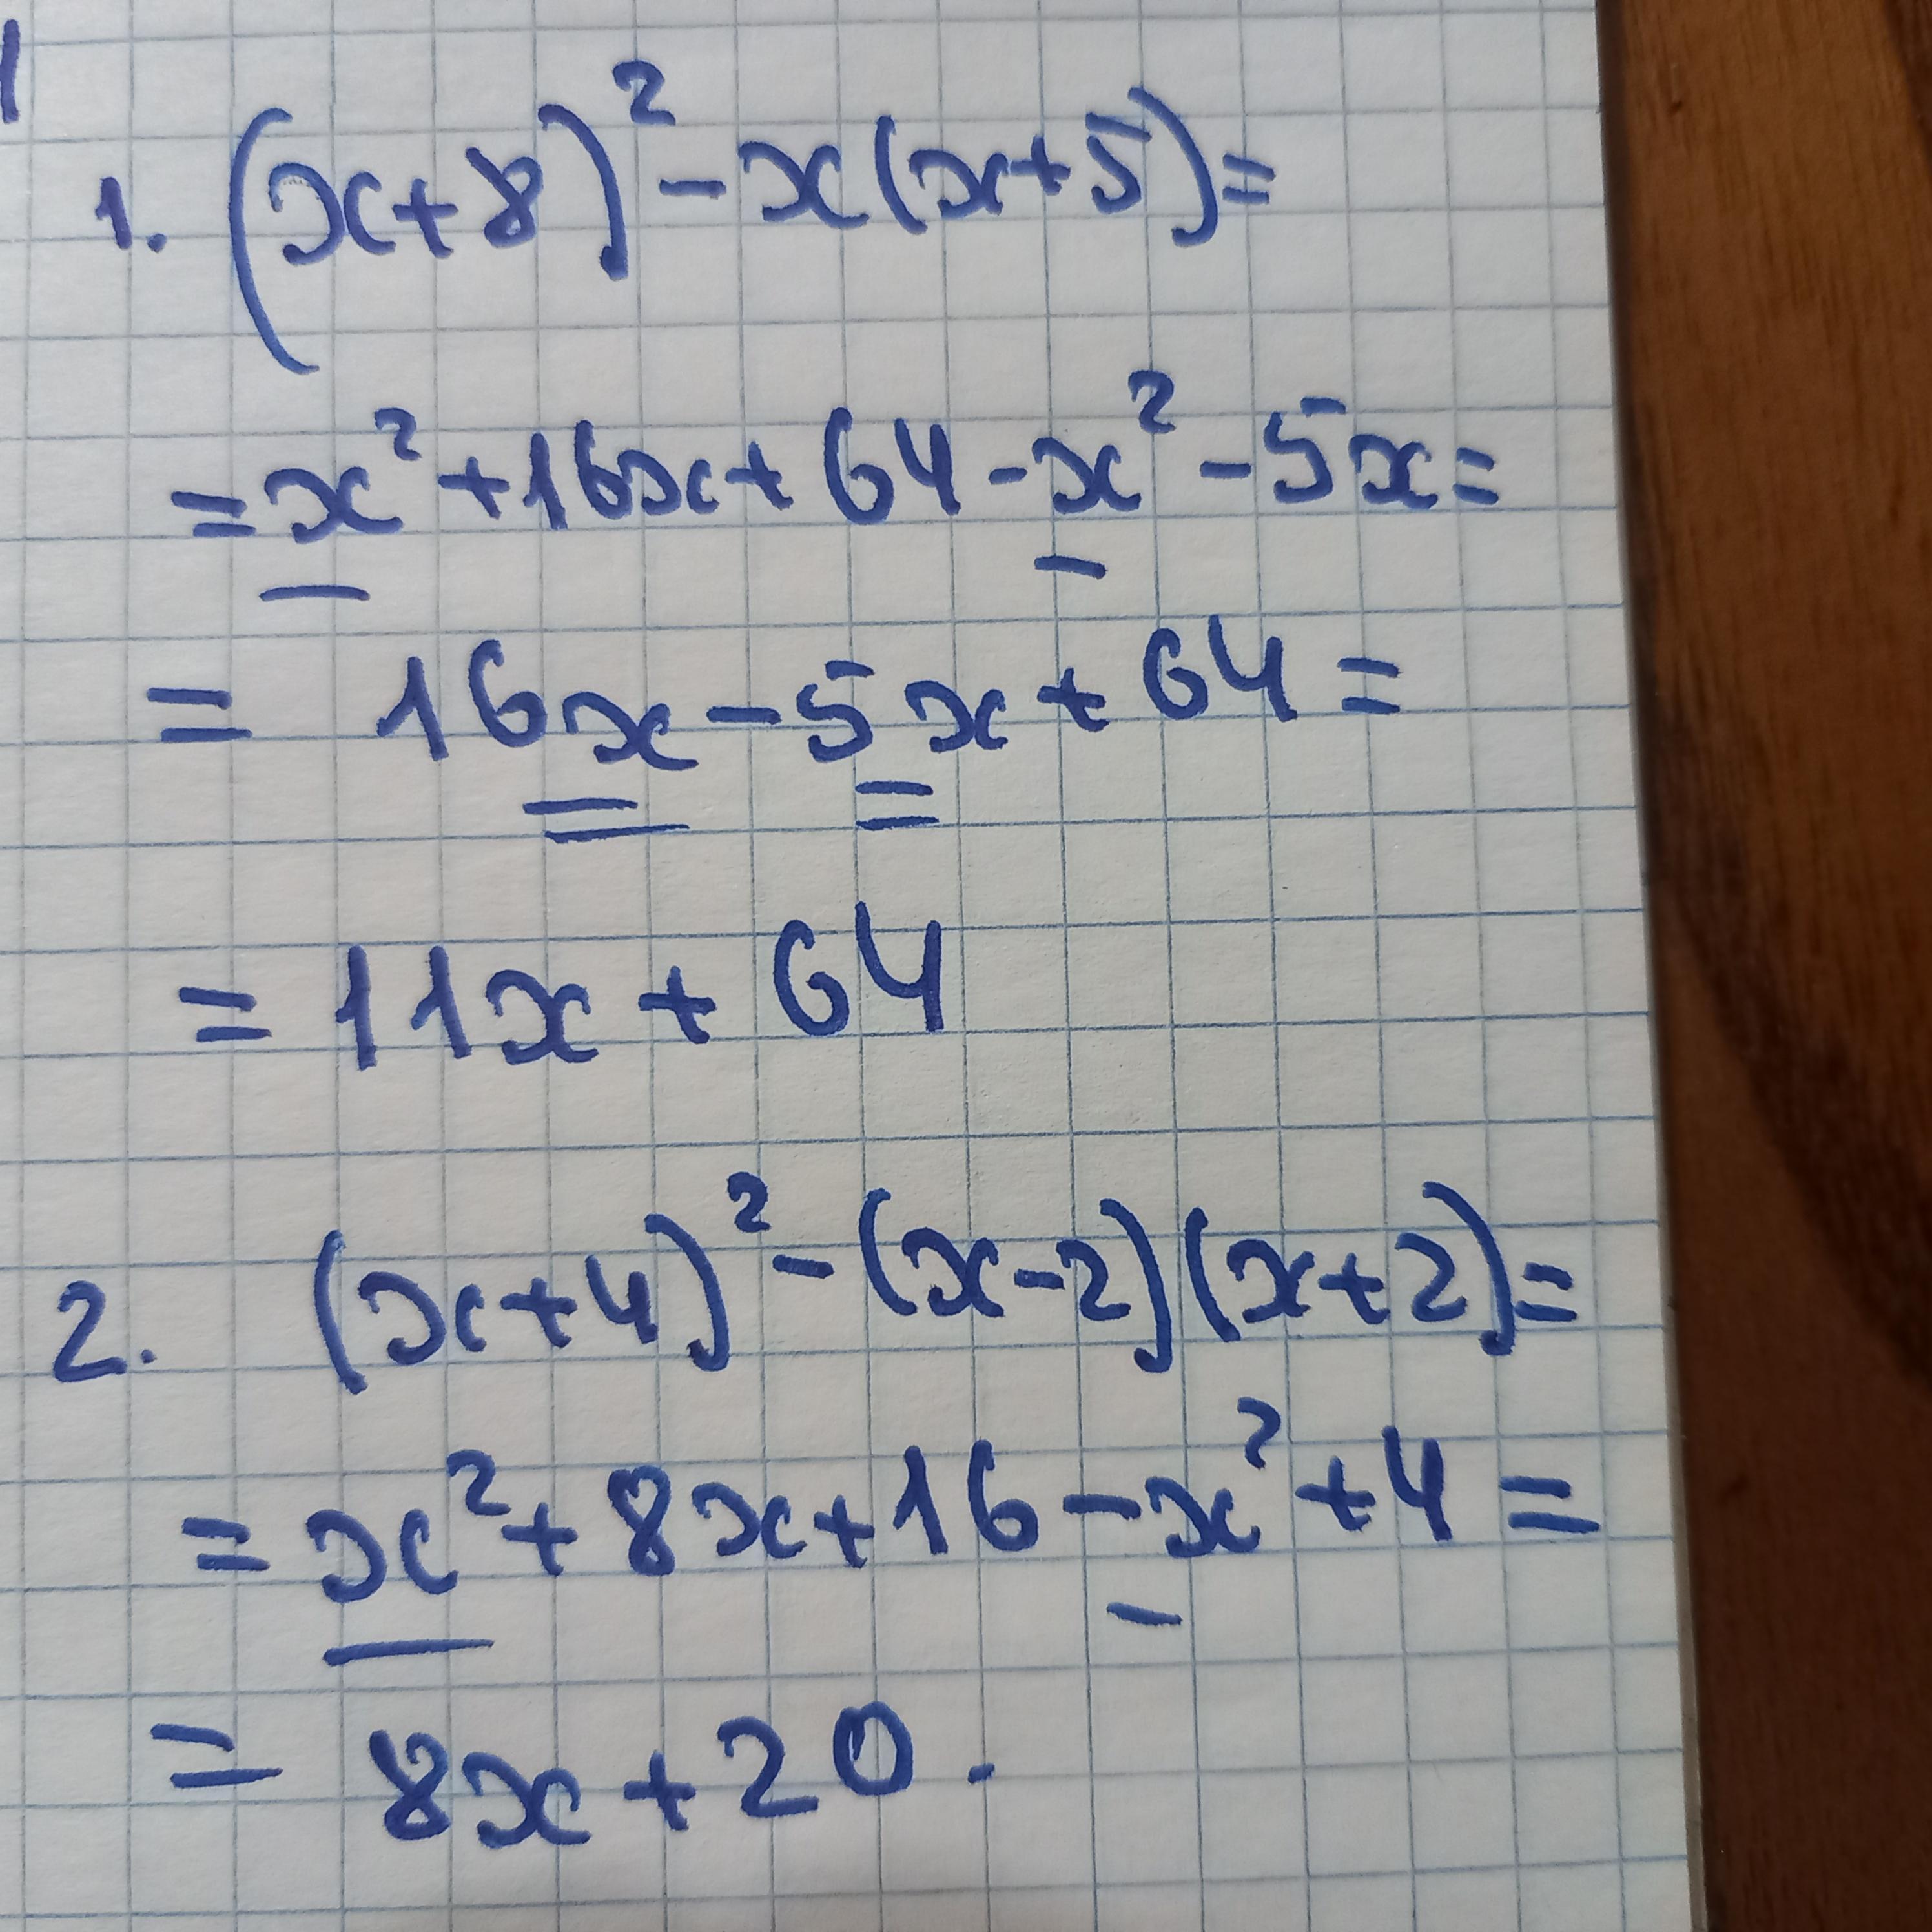 1. (x+8)² - x(x+5) =
= x² + 16x + 64 - x² - 5x =
= 16x - 5x + 64 =
= 11x + 64
2. (x+4)² - (x-2)(x+2) =
= x² + 8x + 16 - x² + 4 =
= 8x + 20.